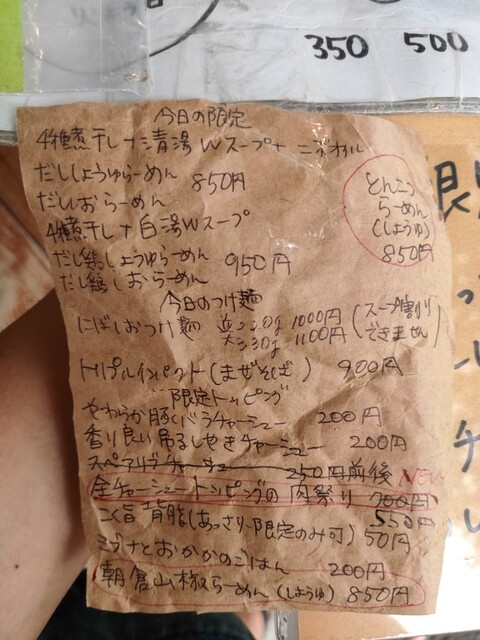 350 500
今日の限定
4種煮干し+清湯Wスープ+ニボオイル
だししょうゆらーめん 850円
だしおらーめん
4種煮干し+白湯Wスープ
だし鶏しょうゆらーめん 950円
だし鶏しおらーめん
とんこつ
らーめん
(しょうゆ)
850円
今日のつけ麺
にぼしおつけ麺 並220g 1000円 (スープ割り
大330g 1100円 できません)
トリプルインパクト(まぜそば) 900円
限定トッピング
やわらか豚バラチャーシュー 200円
香り良い吊るしやきチャーシュー 200円
スペアリブチャーシュー 250円前後
NEW
全チャーシュートッピングの肉祭り 700円
550円
こく旨背脂(あっさり、限定のみ可) 50円
ミズナとおかかのごはん 200円
朝倉山椒らーめん(しょうゆ) 850円